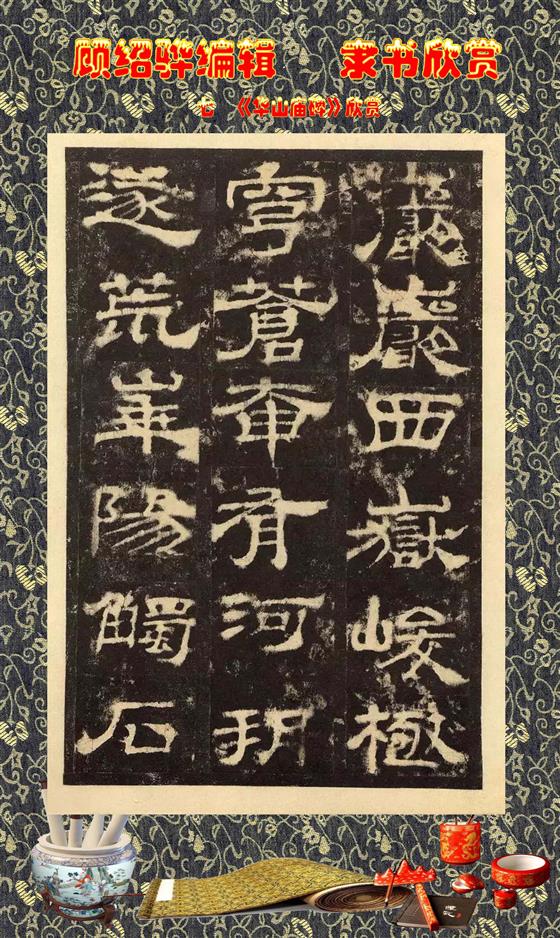 顾绍骅编辑 隶书欣赏
《华山庙碑》欣赏
巖巖西嶽峻極
穹蒼奄有河朔
遂荒華陽觸石